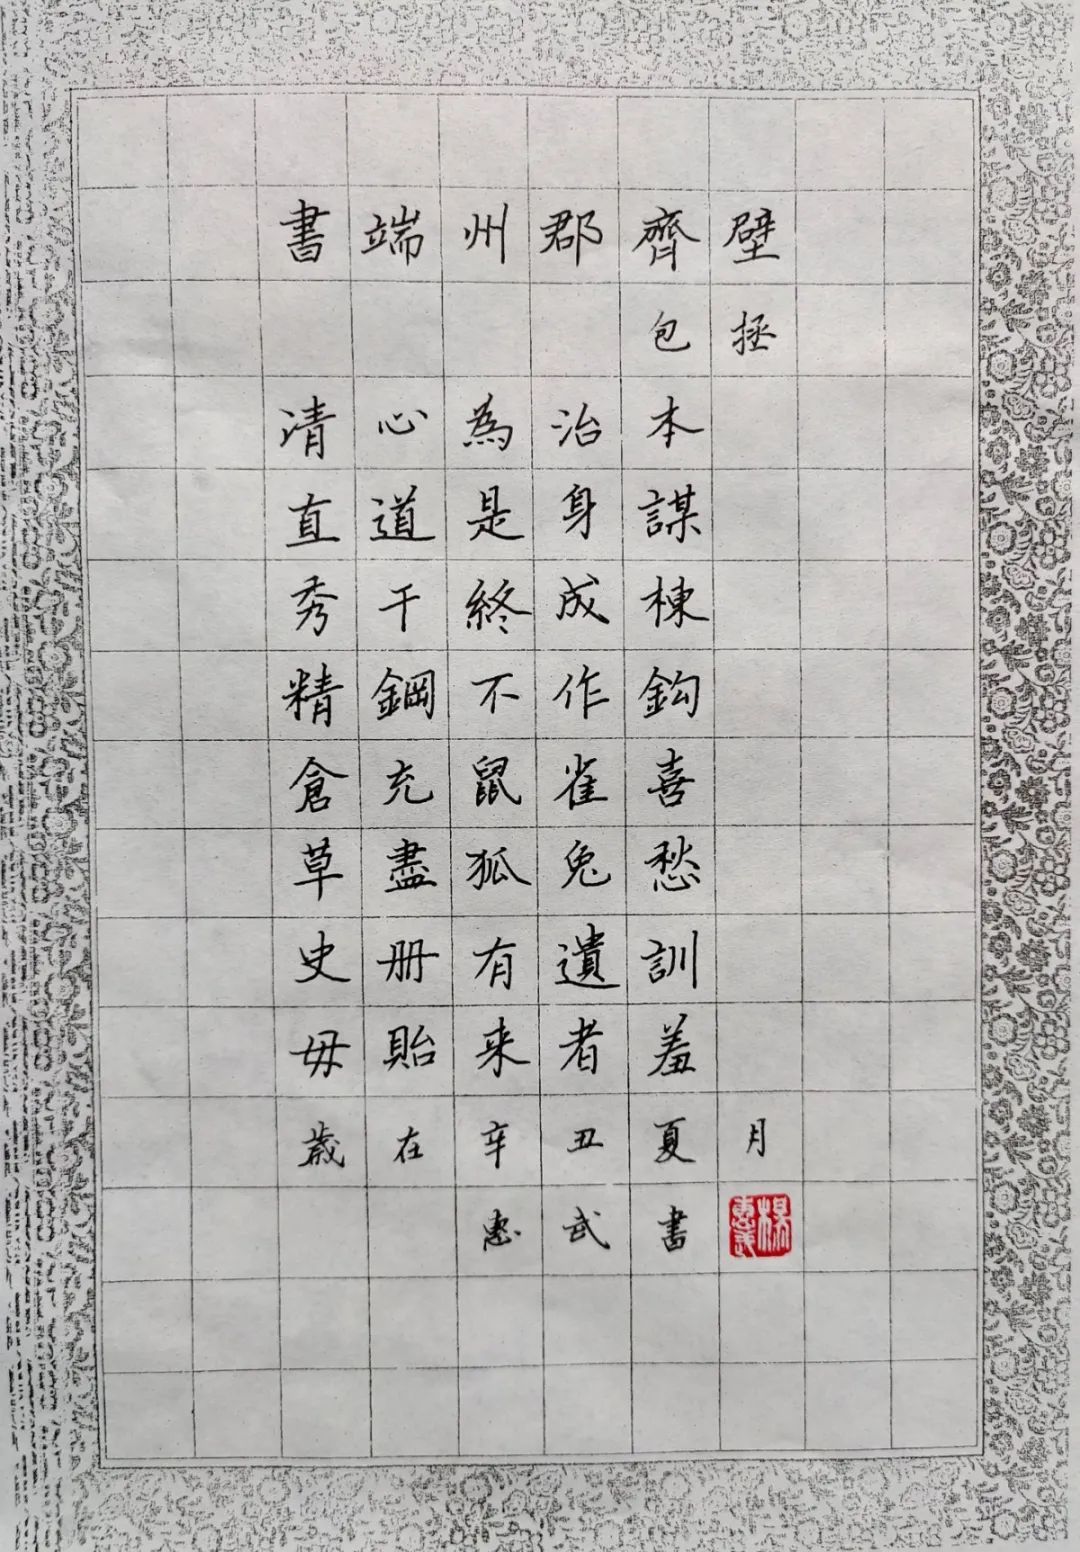 書端州郡齊壁
包拯
清心為治本
直道是身謀
秀干終成棟
精鋼不作鈎
倉充鼠雀喜
草盡狐兔愁
史册有遺訓
毋貽来者羞
歲在辛丑夏月
惠武書
楊惠武